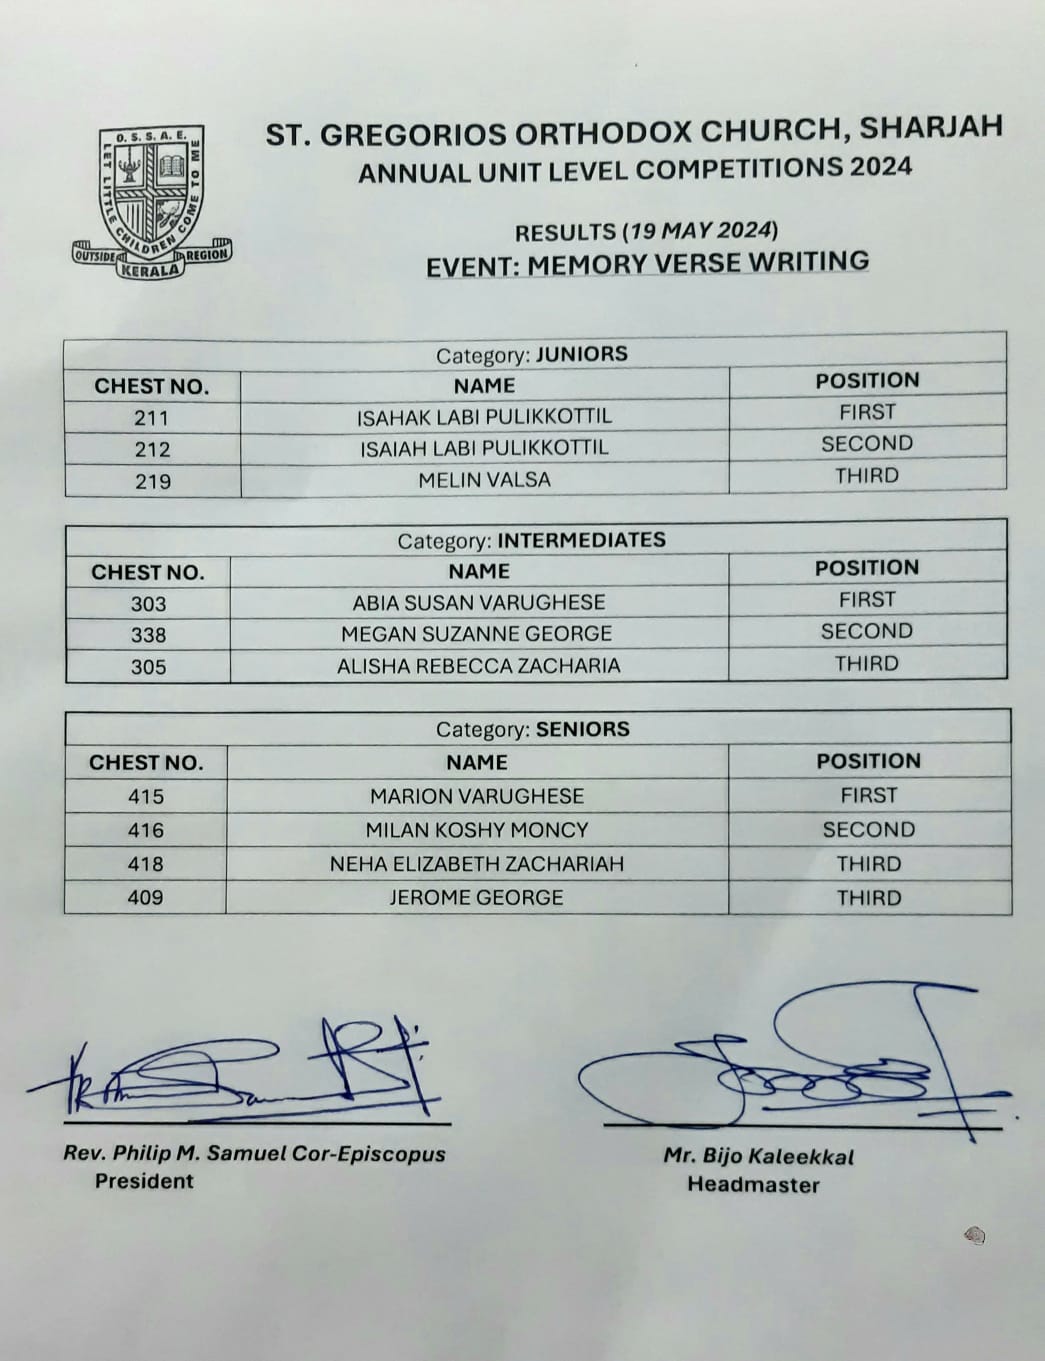 O. S. S. A. E.
LET LITTLE CHILDREN COME TO ME
OUTSIDE KERALA REGION
ST. GREGORIOS ORTHODOX CHURCH, SHARJAH
ANNUAL UNIT LEVEL COMPETITIONS 2024
RESULTS (19 MAY 2024)
EVENT: MEMORY VERSE WRITING
Category: JUNIORS
CHEST NO. NAME POSITION
211 ISAHAK LABI PULIKKOTTIL FIRST
212 ISAIAH LABI PULIKKOTTIL SECOND
219 MELIN VALSA THIRD
Category: INTERMEDIATES
CHEST NO. NAME POSITION
303 ABIA SUSAN VARUGHESE FIRST
338 MEGAN SUZANNE GEORGE SECOND
305 ALISHA REBECCA ZACHARIA THIRD
Category: SENIORS
CHEST NO. NAME POSITION
415 MARION VARUGHESE FIRST
416 MILAN KOSHY MONCY SECOND
418 NEHA ELIZABETH ZACHARIAH THIRD
409 JEROME GEORGE THIRD
Rev. Philip M. Samuel Cor-Episcopus
President
Mr. Bijo Kaleekkal
Headmaster